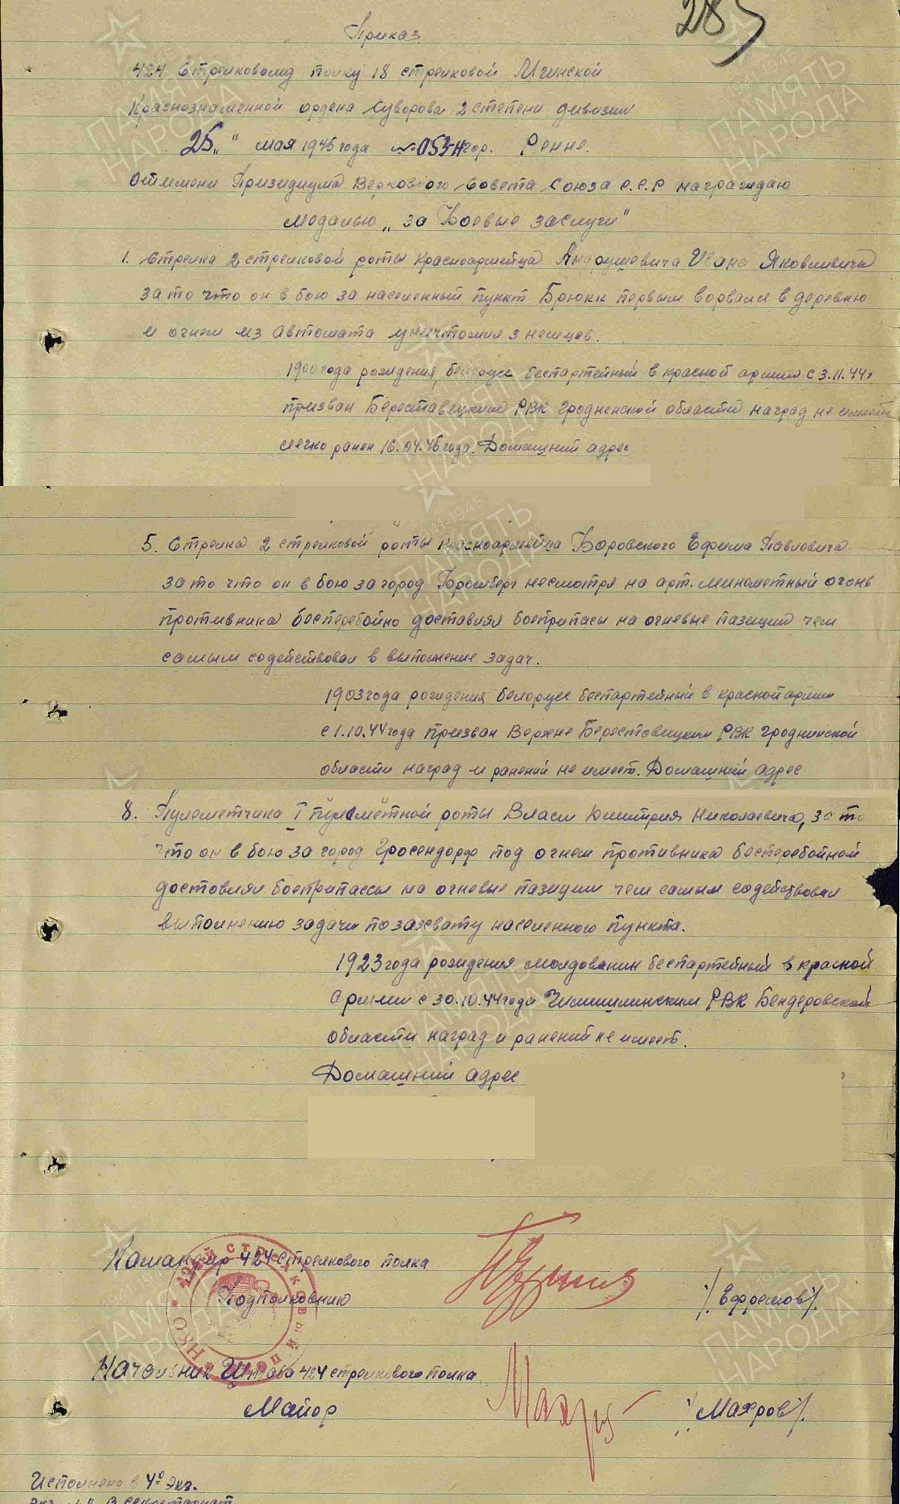 283
Приказ
424 Стрелковому полку 18 стрелковой Мгинской
Краснознаменной ордена Суворова 2 степени дивизии
"25" мая 1945 года № 053-н гор. Ренне.
От имени Призидиума Верховного Совета Союза С.С.Р награждаю
Медалью "За Боевые заслуги"
1. Стрелка 2 стрелковой роты Красноармейца Андрушевича Ивана Яковлевича
за то что он в бою за населенный пункт Брюкк первым ворвался в деревню
и огнем из автомата уничтожил 3 немцев.
1900 года рождения, белорусс беспартейный в красной армии с 3.11.44г
призван Береставецким РВК Гродненской области наград не имеет
легко ранен 16.04.45 года. Домашний адрес
5. Стрелка 2 стрелковой роты красноармейца Боровского Ефима Павловича
за то что он в бою за город Бромберг несмотря на арт. минометный огонь
противника бесперебойно доставлял боеприпасы на огневые пазиции чем
самым содействовал в выполнение задач.
1903 года рождения белорусс беспартейный в красной армии
с 1.10.44 года призван Верхне Берестовицким РВК Гроднинской
области наград и ранений не имеет. Домашний адрес
8. Пулеметчика 1 пулеметной роты Власи Дмитрия Николаевича, за то
что он в бою за город Гросендорф под огнем противника бесперебойной
достовлял боеприпассы на огневые пазиции чем самым содействовал
выполнению задачи по захвату населенного пункта.
1923 года рождения молдованин беспартейный в красной
армии с 30.10.44 года Чимишлинским РВК Бендеровской
области наград и ранений не имеет.
Домашний адрес
Командир 424 Стрелкового полка
Подполковник /Ефремов/.
Начальник Штаба 424 стрелкового полка
Майор /Махров/.
Исполнено в 4х экз.
экз. в секретариат
ПАМЯТЬ НАРОДА